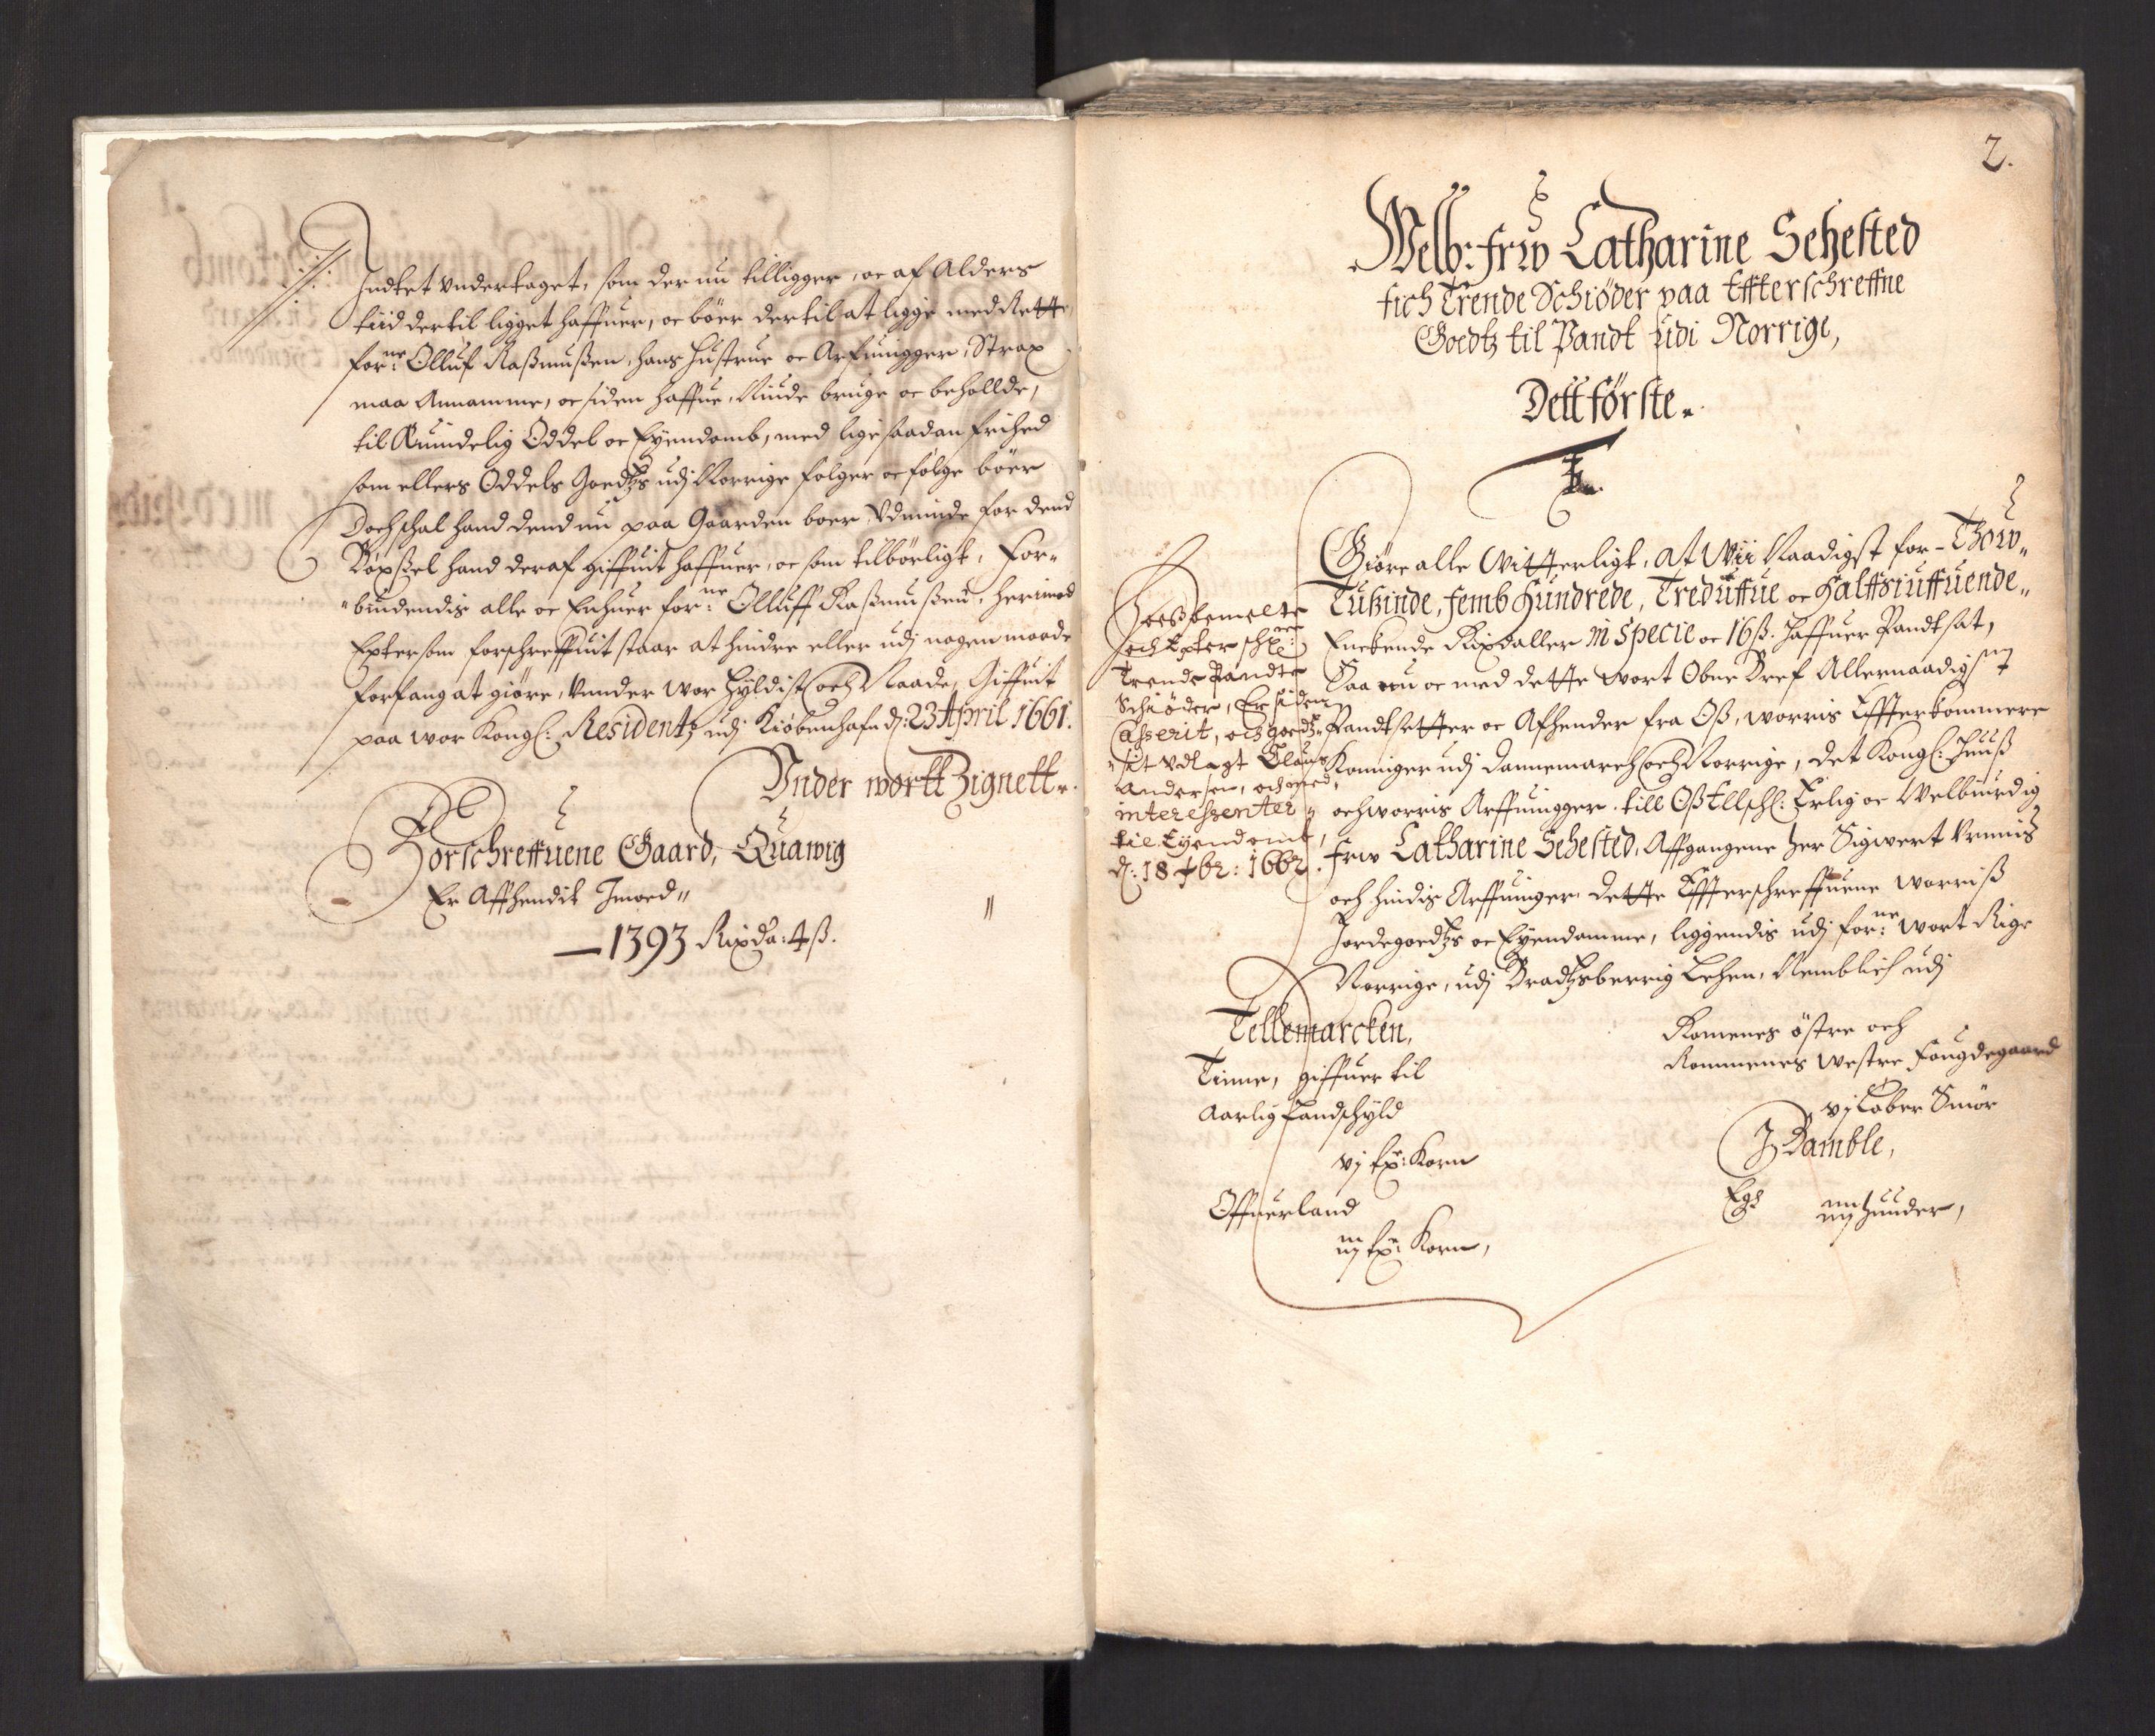 Indtet undertaget, som der nu tilligger, oc af Alders
tiid dertil ligget haffuer, oc bör dertil at ligge med Rette
forne: Olluf Raßmußen, hans hustrue oc Arfuingger, Strax
maa Annamme, oc siden haffue, Niude bruge oc beholde,
til Æuindelig Oddel oc Eyendomb, med lige saadan frihed
som ellers Oddels Goedtzs udj Norrige følger oc følge bör
Doch schal hand dend nu paa Gaarden boer, Udminde for dend
Böxßel hand deraf giffuit haffuer, oc som tilbörligt, For-
biudendis alle oc Enhuer forne: Olluff Raßmußen, herimod
Eftersom forschreffuit staar at hindre eller udj nogen maade
forfang at giöre, Vunder Wor Hyldist och Naade, Giffuit
paa Wor Kongl: Residentz udj Kiöbenhafn d: 23 April 1661.
Under wortt Zignett.
Forschreffuene Gaard, Quawig
Er Affhendit Imod
1393 Rixda: 4 ß.
2.
Welb: frw Catharine Sehested
fich Trende Schiöder paa Effterschreffne
Goedtz til Pandt udi Norrige,
Dett förste.
F3.
Giöre alle Witterligt, At Wii Naadigst for - Thow
Tußinde, femb Hundrede, Tredüffue oc Halffsiuffuende
Enckende Rixdaller in Specie oc 16 ß. haffuer Pandtsat,
Saa nu oc med dette Wort Obne Bref Allernaadigst
Pandtsetter oc Afhender fra Oß, Worris Effterkommere
Konninger udj Dannemarch och Norrige, det Kongl: Huuß
och worris Arffuingger, till Oß Ellschl: Erlig oc Welbiurdig
frw Catharine Sehested, Affgangene Her Sigwert Urnis
och hindis Arffuinger, dette Effterschreffuene Worriß
Jordegoedtzs oc Eyendomme, liggendis udj forne: Wort Rige
Norrige, udj Bradtzberrig Lehen, Nemblich udj
Hoesbemelte
och Efter schne:
Trende Pandte
Schiöder, Er siden
Casserit, och goedtz
sit Udlagt Claus
Andersen, och med
interessenter
til Eyendomb,
d: 18 7br: 1662.
Tellemarcken,
Tinne, giffuer til
Aarlig Landschyld
vj fx: Korn
Offuerland
iij fx: Korn,
Romenes östre och
Rommenes Westre Fougdegaard
vj Løber Smör
I Bamble,
Egs iiij huuder,